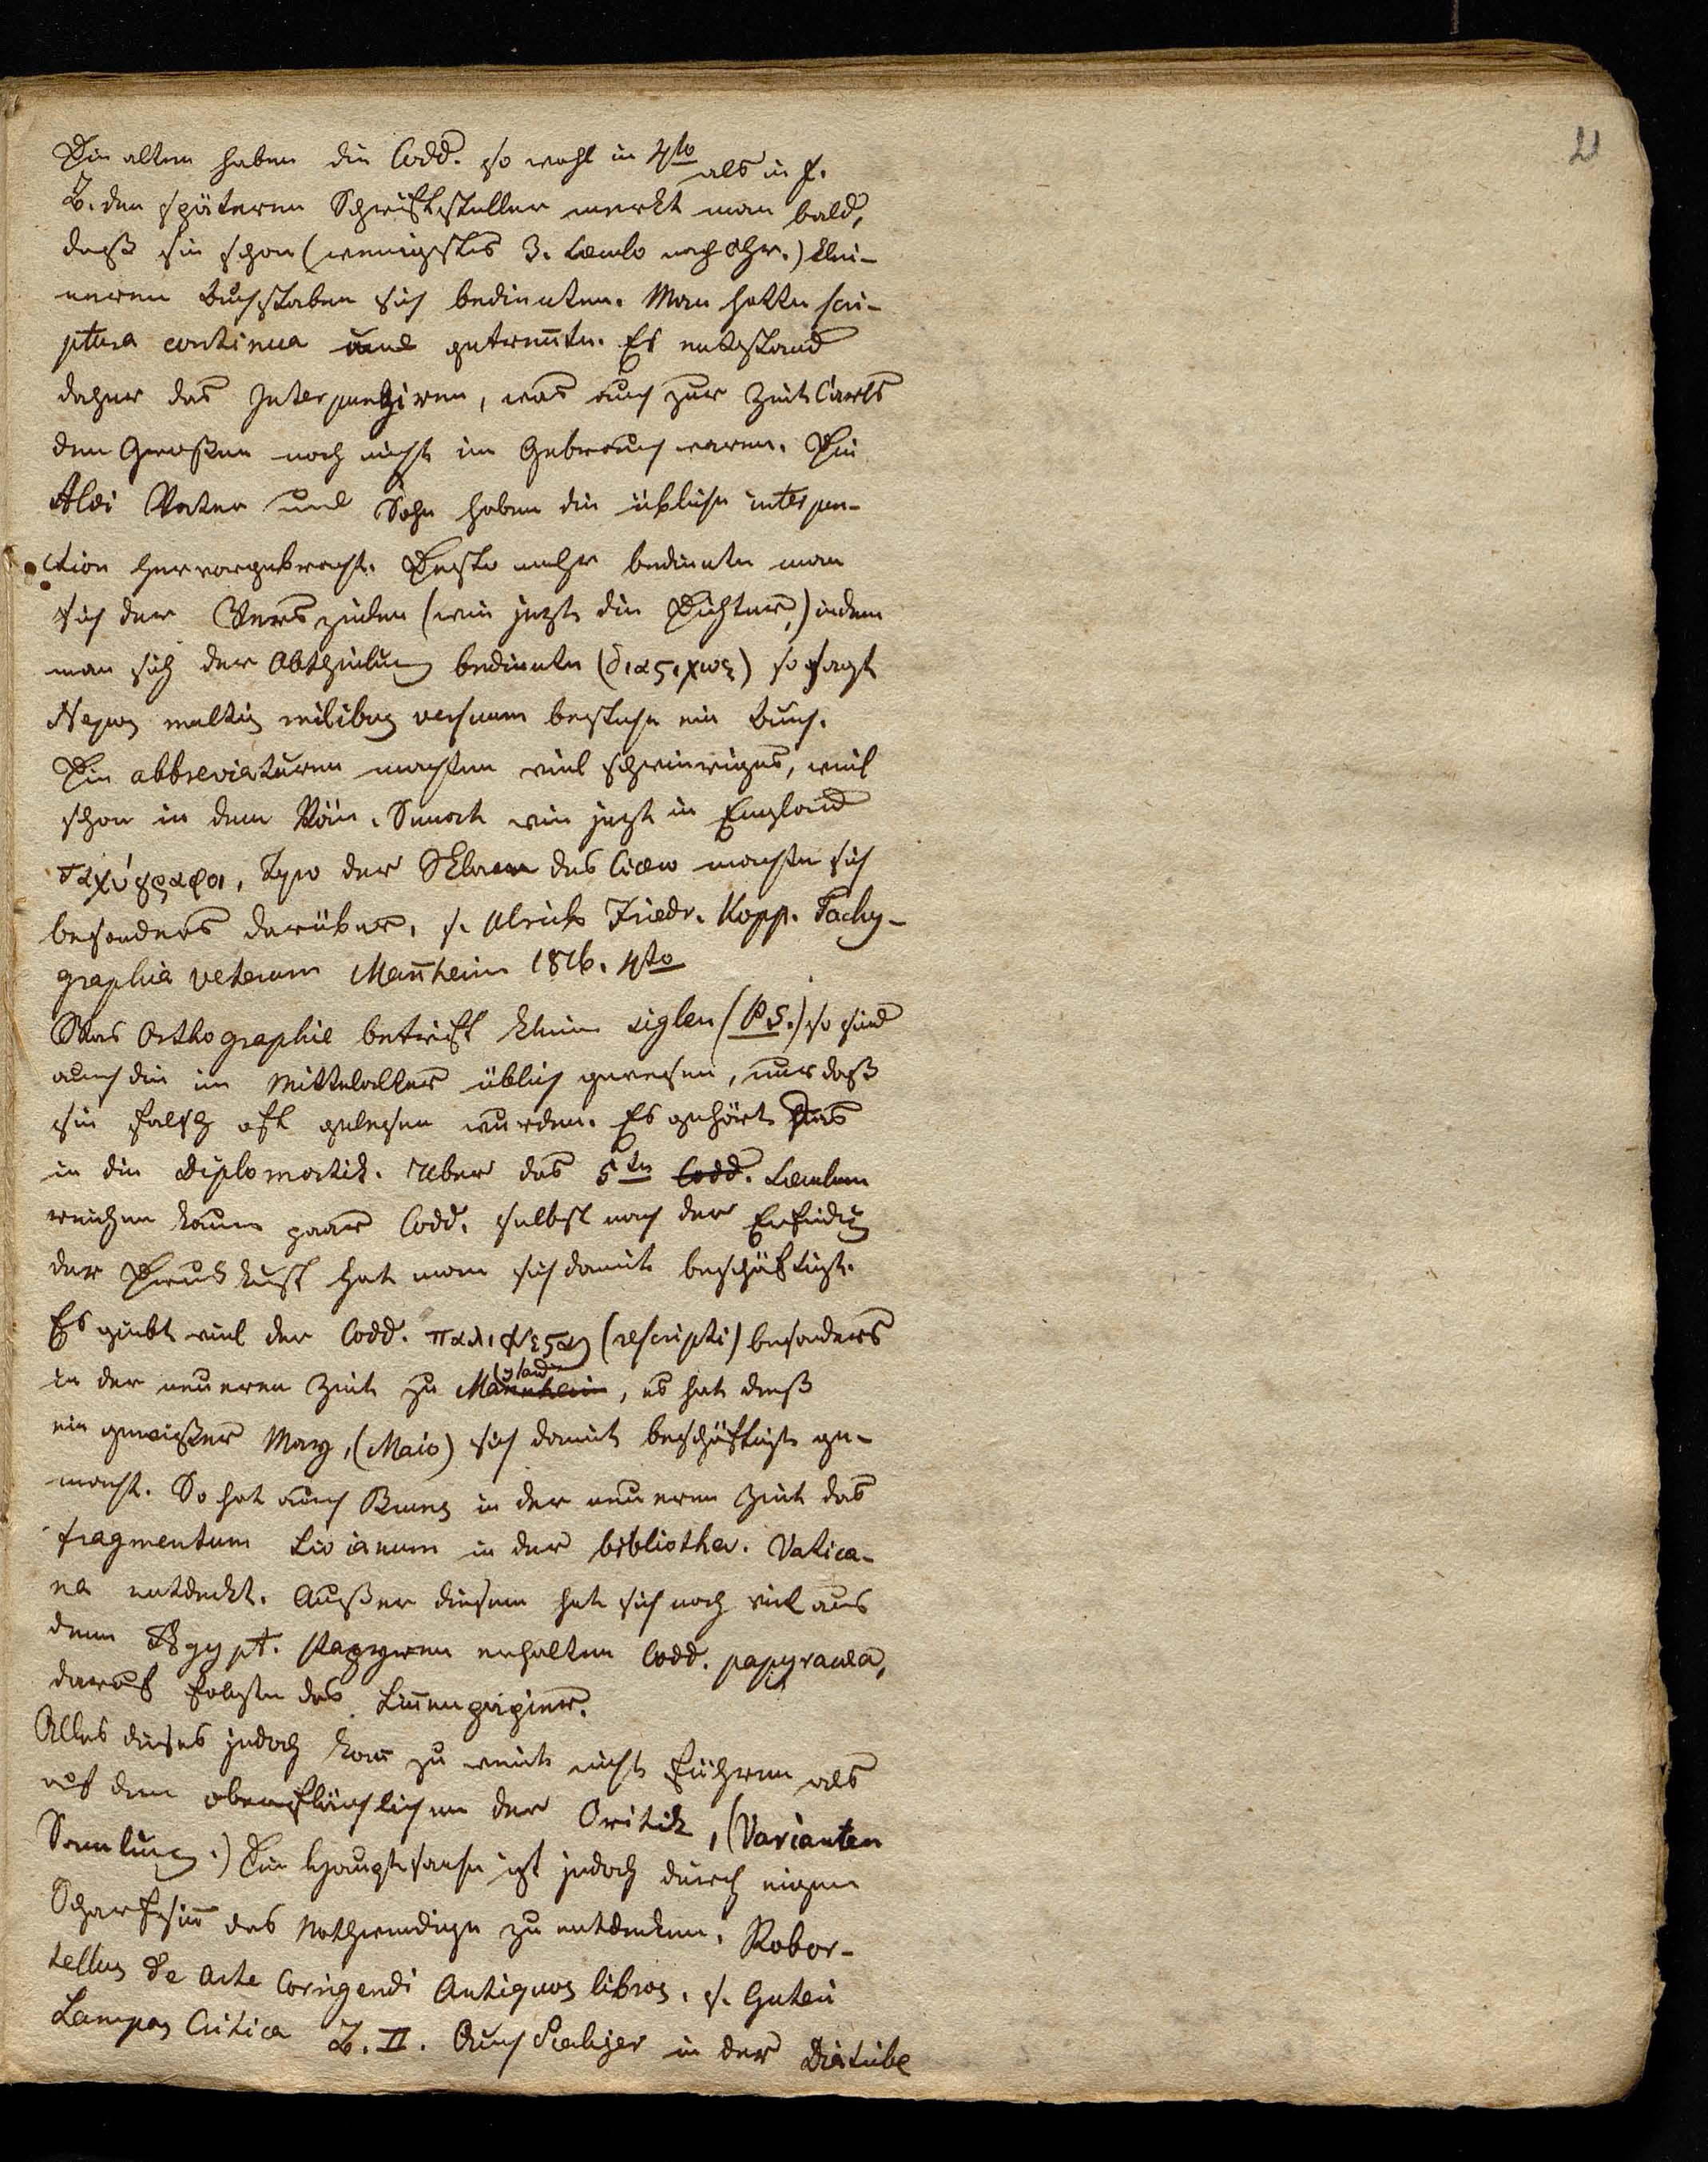 21
Die alten haben die Codd. so wohl in 4to als in f.
B. den späteren Schriftsteller merkt man bald,
daß sie schon (wenigstes 3. Saeculo nach Chr.) klei-
neren Buchstaben sich bedienten. Man hatte scri-
ptura continua und getreñte. Es entstand
daher das Interpungiren, was auch zur Zeit Carls
den Großen noch nicht im Gebrauch waren. Die
Aldi Vater und Sohn haben die übliche interpun-
ction hervorgebracht. Desto mehr bediente man
sich der Verszeilen (wie jetzt die Dichter,) indem
man sich der Abtheilung bediente (διαςιχως) so sagt
Nepos multis milibus versuum bestehe ein Buch.
Die abbreviaturen machten viel schwieriges, weil
schon in dem Röm. Senat wie jetzt in England
ταχύγραφοι, Tyro der Sklave des Cicero machte sich
besonders darüber, s. Ulrich Friedr. Kopp. Tachy-
graphia veterum Mañheim 1816. 4to
Was Orthographie betrift kleine siglen (P.S.) so sind
auch die im Mittelalter üblich gewesen, nur daß
sie falsch oft gelesen wurden. Es gehört das
in die Diplomatik. Uber das 5te Codd. Saeculum
reichen kaum paar Codd. selbst nach der Erfindung
der Druckkunst hat man sich damit beschäftigt.
Es giebt viel der Codd. παλιψεςοι (rescripti) besonders
in der neueren Zeit zu Mannheim Mailand, es hat dieß
ein gewißer May, (Maio) sich damit beschäftigt ge-
macht. So hat auch Bruns in der neueren Zeit das
fragmentum Livianum in der bibliothec. Vatica-
na entdeckt. Außer diesem hat sich noch viel aus
dem Ægypt. Papyren erhalten Codd. papyracea,
darauf folgte das Liñenpapier.
Alles dieses jedoch kañ zu weit nicht führen als
auf dem oberflächlichen der Critik, (Varianten
Samlung.) Die Hauptsache ist jedoch durch eigen
Scharfsiñ das Nothwendige zu entdecken. Robor-
tellus de Arte Corrigendi Antiquos libros. s. Guteri
Lampas Critica B. II. Auch Scaliger in der Diatribe